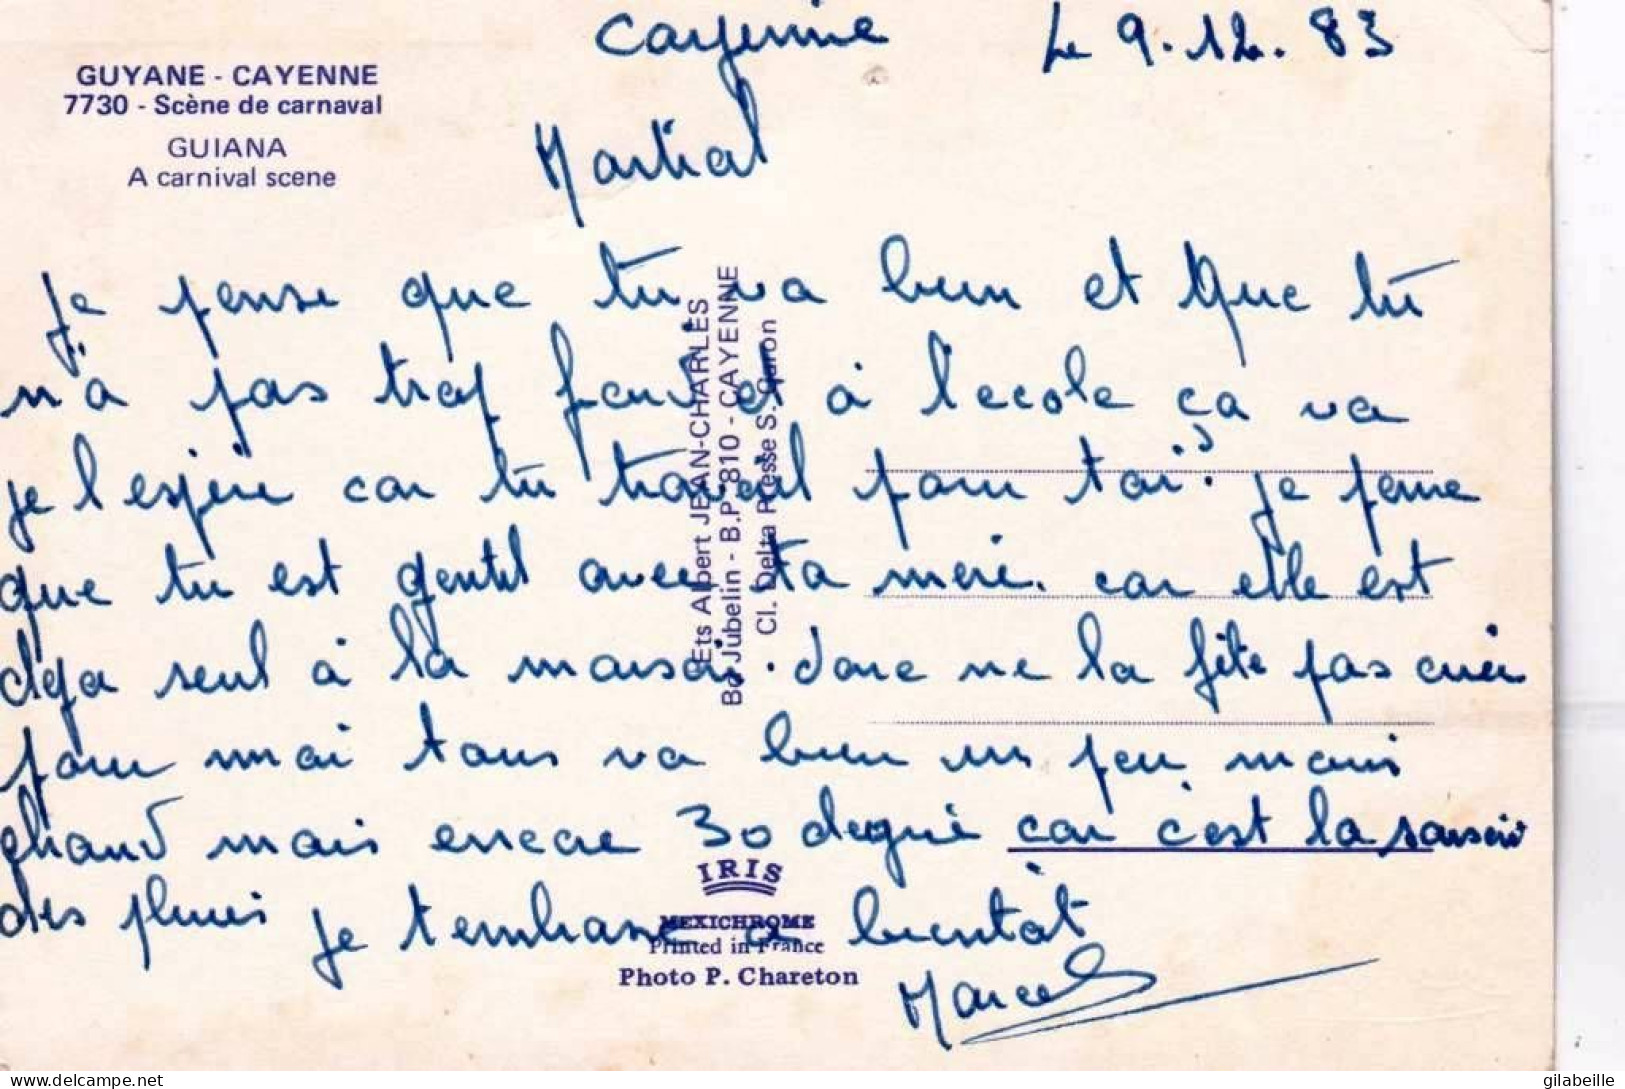 Cayenne Le 9.12.83
GUYANE - CAYENNE
7730 - Scène de carnaval
GUIANA
A carnival scene
Martial
je pense que tu va bien et que tu
n'a pas trop froid et à l'ecole ça va
je l'espère car tu travail pour toi. je pense
que tu est gentil avec ta mere. car elle est
deja seul à la maison. donc ne la fête pas crier
pour moi tous va bien un peu mais
chaud mais encore 30 degrié car c'est la saison
des pluies je t'embrasse a bientôt
Marcel
Ets Albert JEAN-CHARLES
Bd Jubelin - B.P. 810 - CAYENNE
Cl. Delta Presse S. Guron
IRIS
MEXICHROME
Printed in France
Photo P. Chareton
delcampe.net
gilabeille